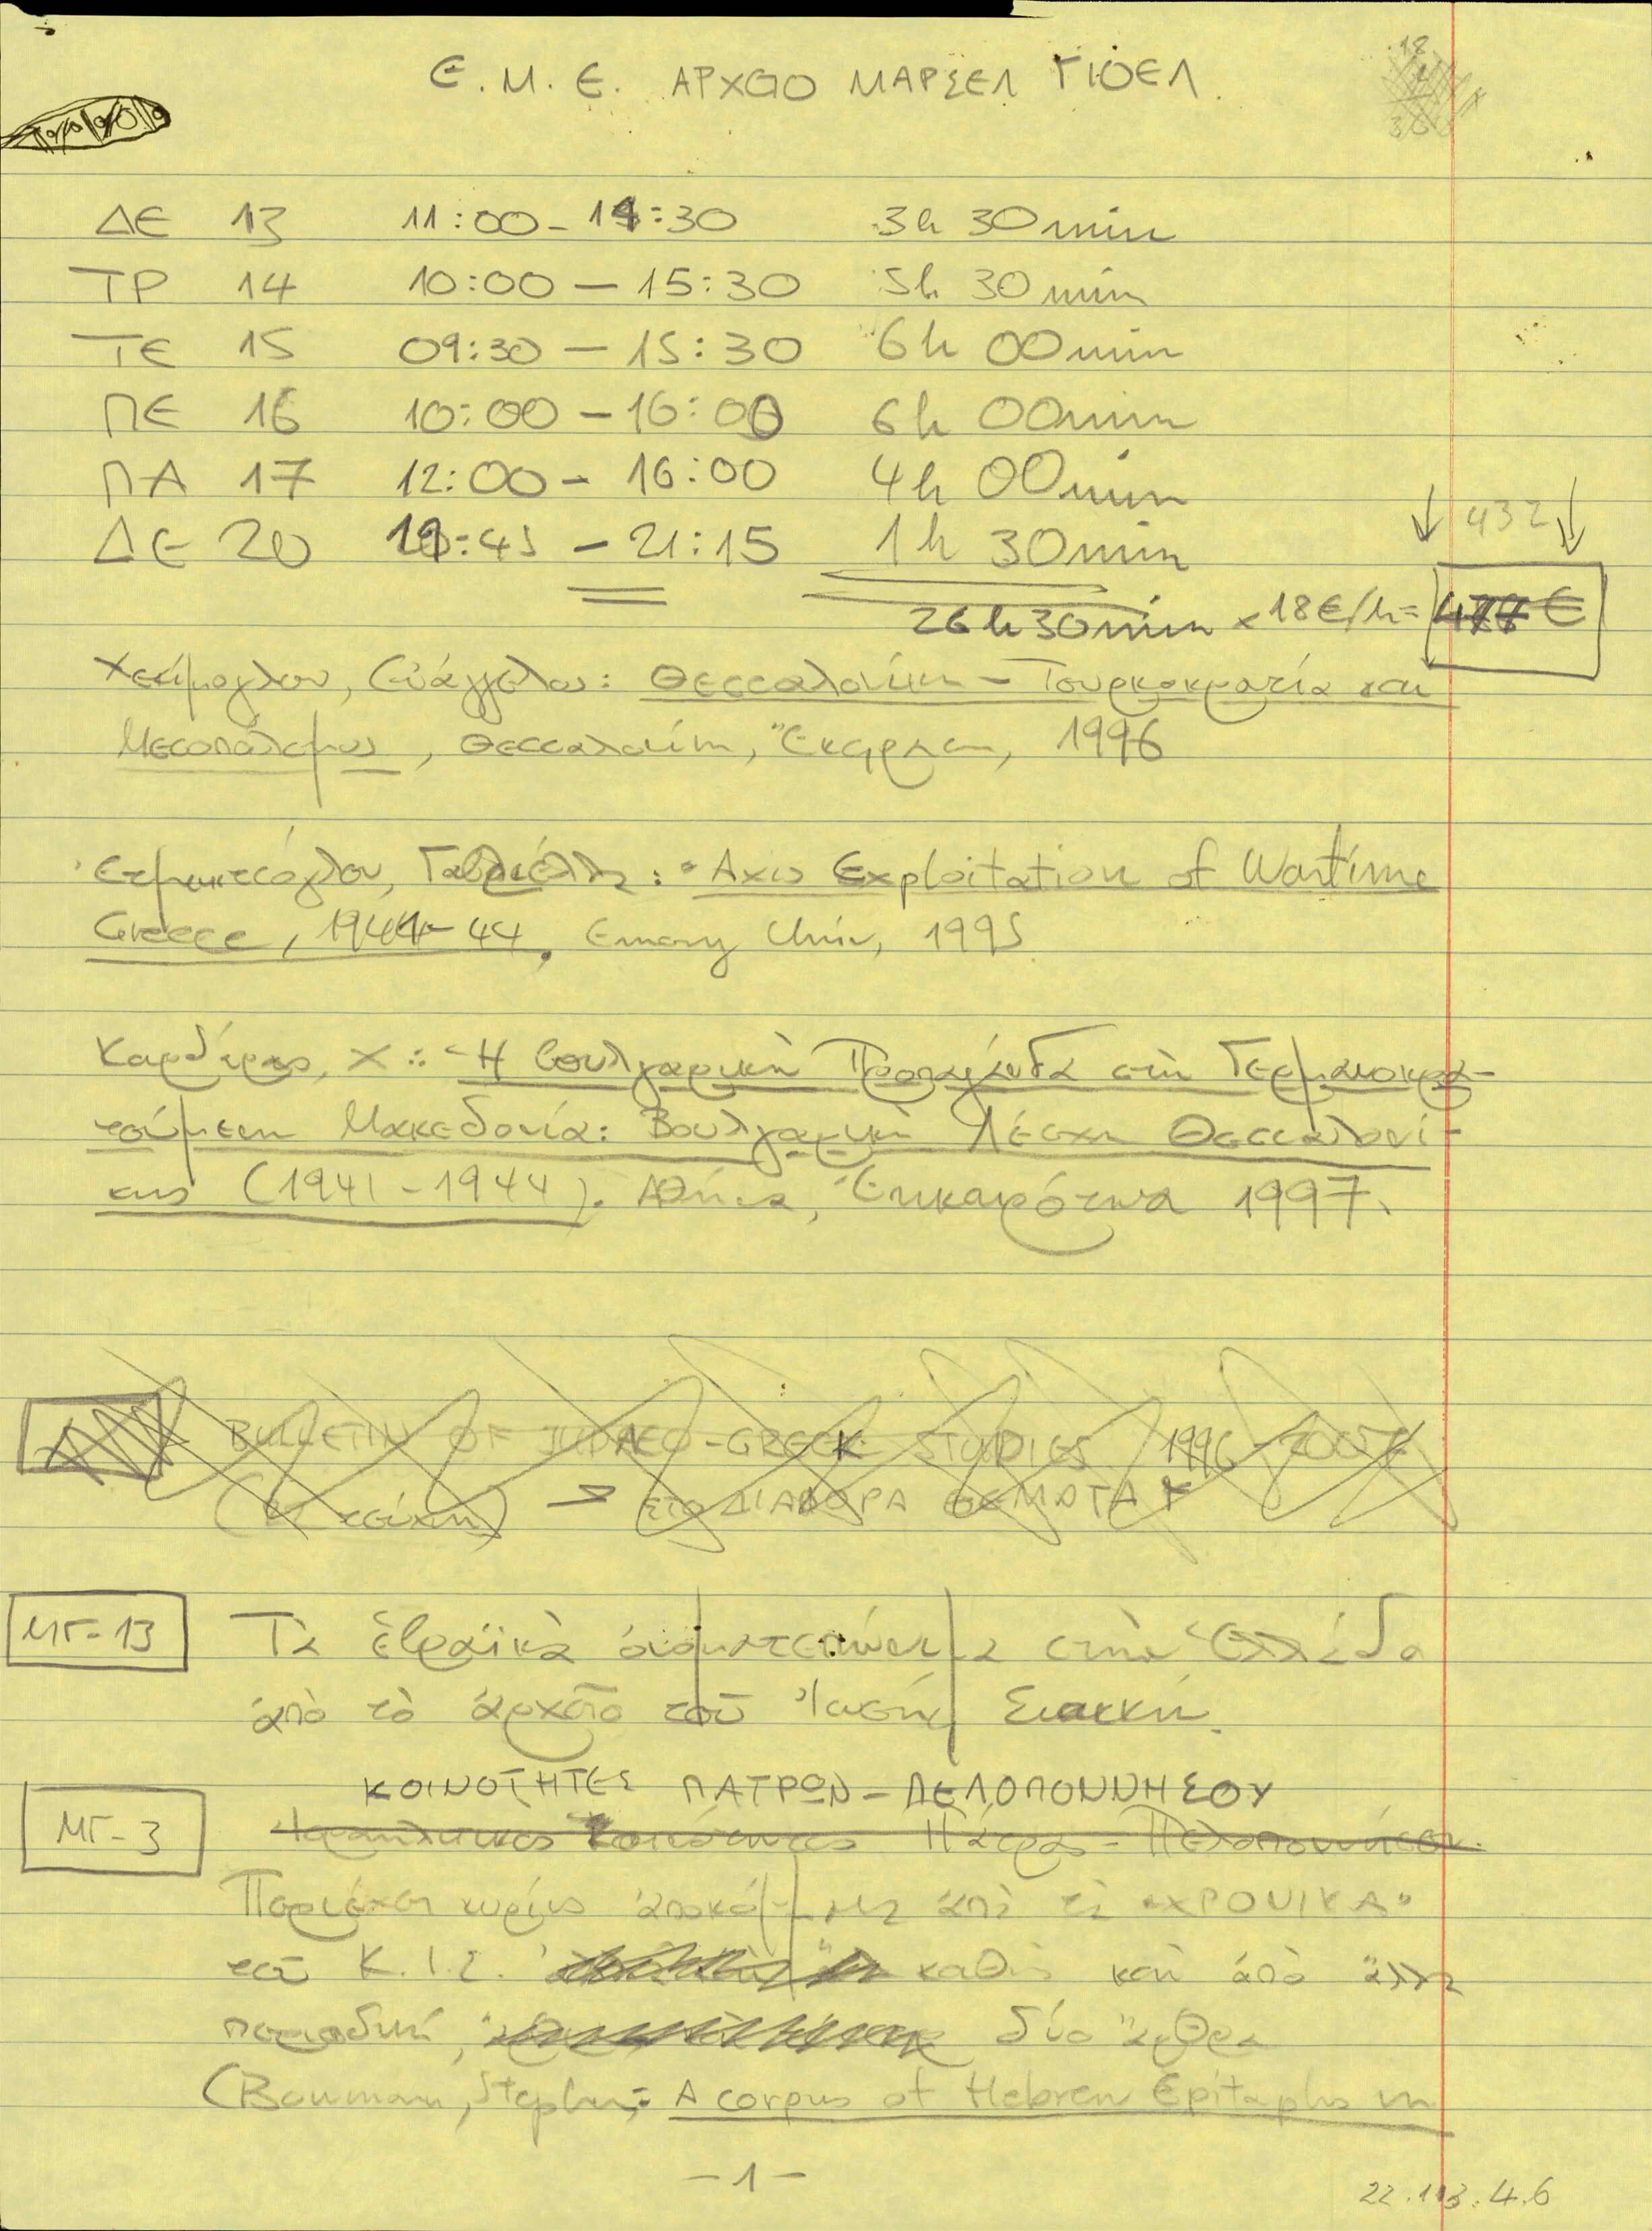 Ε.Μ.Ε. ΑΡΧΕΙΟ ΜΑΡΣΕΛ ΓΙΟΕΛ
ΔΕ 13 11:00 - 14:30 3h 30min
ΤΡ 14 10:00 - 15:30 5h 30min
ΤΕ 15 09:30 - 15:30 6h 00min
ΠΕ 16 10:00 - 16:00 6h 00min
ΠΑ 17 12:00 - 16:00 4h 00min
↓ 432 ↓
ΔΕ 20 19:45 - 21:15 1h 30min
26h 30min × 18€/h = €
Χεκίμογλου, Εὐάγγελος: Θεσσαλονίκη - Τουρκοκρατία και
Μεσοπόλεμος, Θεσσαλονίκη, Ἔκφραση, 1996
Ετμεκτσόγλου, Γαβριέλλα: Axis Exploitation of Wartime
Greece, 1941-44, Emory Univ, 1995
Καρδάρας, Χ.: Ἡ Βουλγαρική Προπαγάνδα στὴ Γερμανοκρα-
τούμενη Μακεδονία: Βουλγαρικὴ Λέσχη Θεσσαλονί-
κης (1941-1944). Αθήνα, Ἐπικαιρότητα 1997.
BULLETIN OF JUDAEO-GREEK STUDIES 1996-
( τεύχη) → στα ΔΙΑΦΟΡΑ ΘΕΜΑΤΑ
ΜΓ-13 Τὰ ἑβραϊκὰ ὀνοματεπώνυμα στὴν Ἑλλάδα
ἀπὸ τὸ ἀρχεῖο τοῦ Ἰωσὴφ Σιακκή.
ΚΟΙΝΟΤΗΤΕΣ ΠΑΤΡΩΝ - ΠΕΛΟΠΟΝΝΗΣΟΥ
ΜΓ-3 Ἰσραηλιτικές Κοινότητες Πάτρας - Πελοποννήσου.
Περιέχει κυρίως ἀποκόμματα ἀπὸ τὰ «ΧΡΟΝΙΚΑ»
τοῦ Κ.Ι.Σ. καθὼς καὶ ἀπὸ ἄλλα
περιοδικά, δύο ἄρθρα
(Bowman, Stephen: A corpus of Hebrew Epitaphs in
- 1 -
22.113.4.6